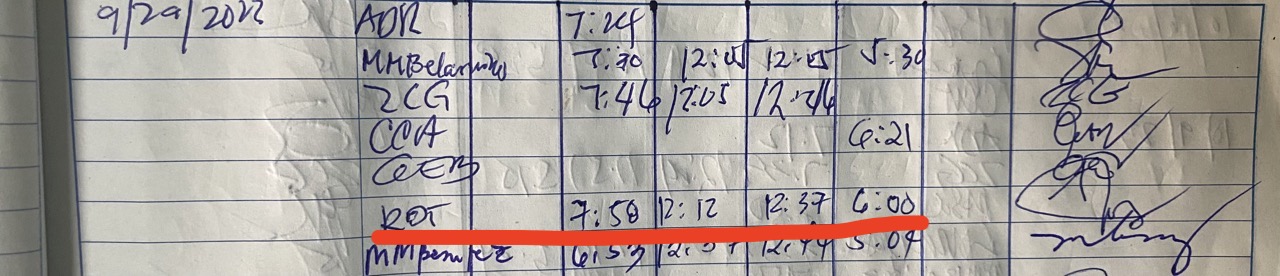 9/29/2022 ADR 7:24
MMBelarmino 7:30 12:05 12:15 5:30
ZCG 7:46 12:05 12:46
CCA 6:21
CEEB
ROT 7:58 12:12 12:37 6:00
6:53 12:37 12:44 5:04